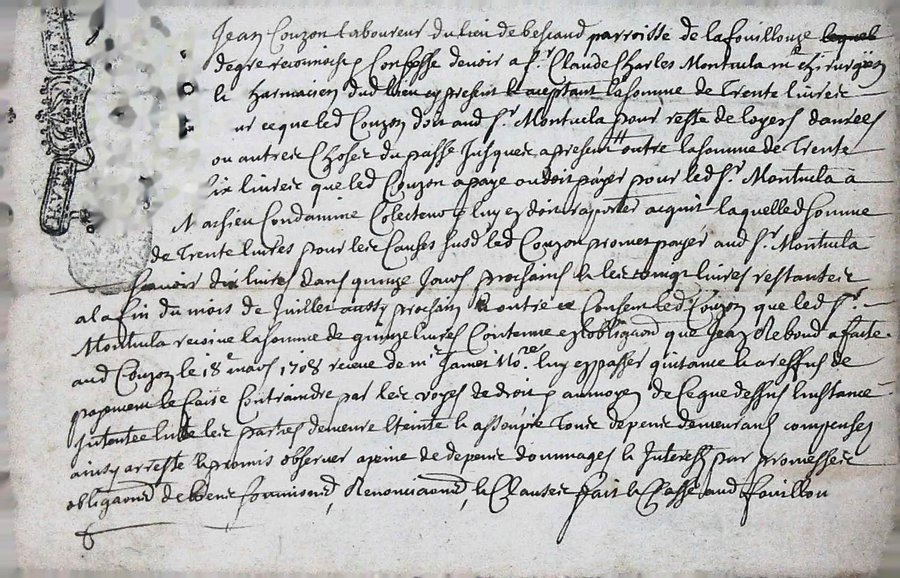 Jean Couzon laboureur du lieu de bessard parroisse de la fouillouze lequel
de gre reconnoist et Confesse devoir a Sr. Claude Charles Montcula mtre chirurgien
le dud lieu cy present & aceptant la somme de Trente livres
ce que led Couzon doit aud Sr. Montcula pour reste de loyers danrées
ou autres Choses du passe Jusques a present outre la somme de Trente
six livres que led Couzon a paye ou doit payer pour led Sr. Montcula à
Mathieu Condamine Colecteur & luy en doit raporter acquit laquelled somme
de Trente livres pour les Causes susd led Couzon promet payer aud Sr. Montcula
scavoir dix livres dans quinze Jours prochains & les vingt livres restantes
a la fin du mois de Juillet aussy prochain & outre ce Consent led Couzon que led Sr.
Montcula retire la somme de quinze livres Contenue en lobligaon que Jean Rebond a faite
aud Couzon le 18e mars 1708 receue de me Jamet No.re luy en passer quitance & a reffus de
payement le faire Contraindre par les voyes de droit, a moyen de ce que dessus linstance
Intentée entre les parties demeure Eteinte & assoupie Tous depens demeurants compensez
ainsy arresté & promis observer a peine de depens dommages & Interests par promesses
obligaons de biens soumissions, Renonciaons, & Clauses fait & Passe aud fouillou